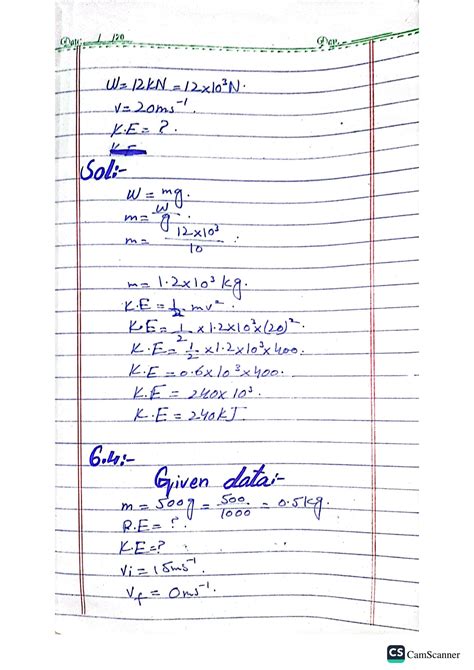 Date: 1 120 Day.
W = 12KN = 12x10³N.
V = 20ms⁻¹.
K.E = ?.
K.E
Sol:-
W = mg.
m = W/g.
m = 12x10³/10 :
m = 1.2x10³ kg.
K.E = 1/2 mv².
K.E = 1/2 x1.2x10³x(20)²
K.E = 1/2 x1.2x10³x400.
K.E = 0.6x10³x400.
K.E = 240x10³.
K.E = 240KJ.
6.4:-
Given data:-
m = 500g = 500/1000 = 0.5kg.
P.E = ?.
K.E = ?
Vi = 15ms⁻¹.
Vf = 0ms⁻¹.
CS CamScanner